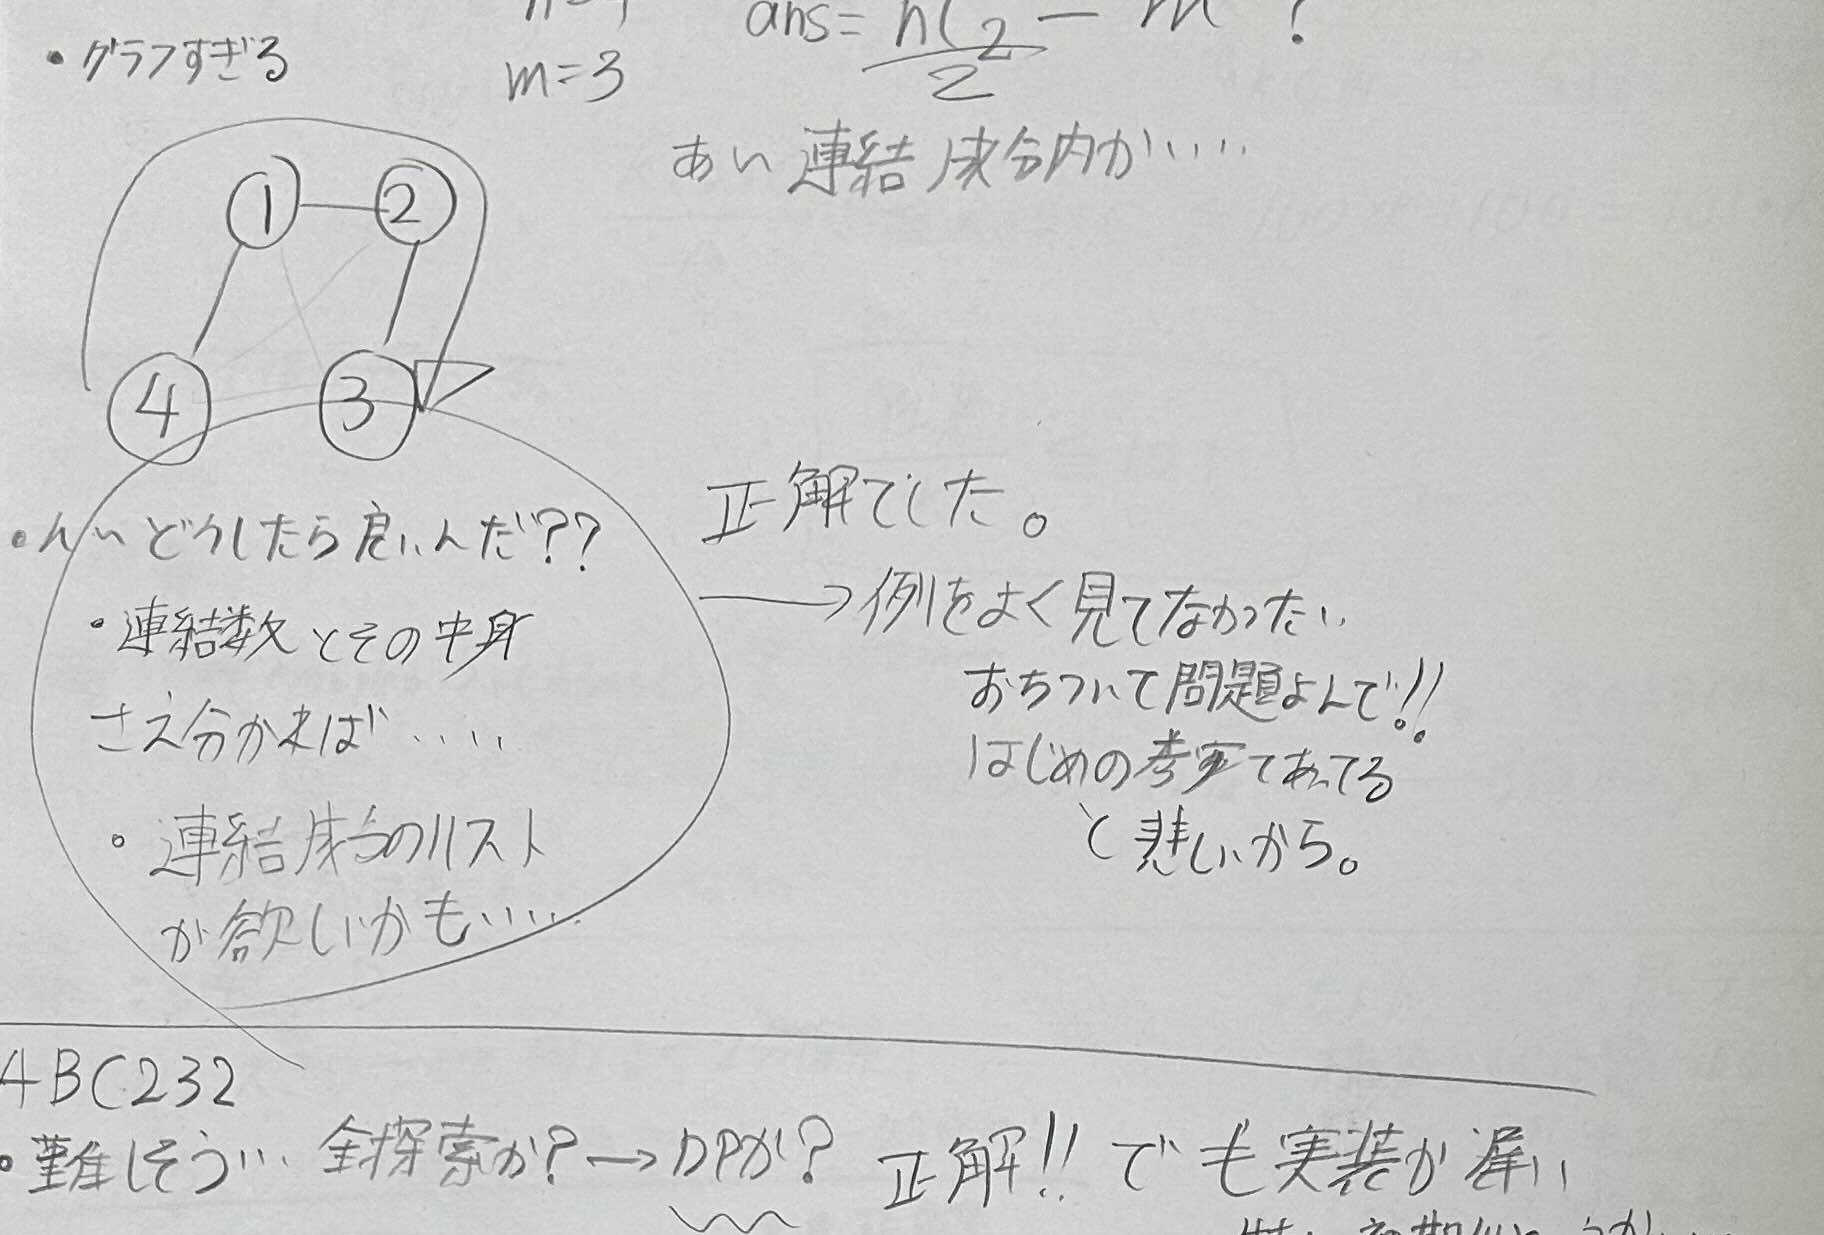 ・グラフすぎる
m=3
ans= nC2 - m ?
2
あ、、連結成分内か....
1 2
4 3
・んーどうしたら良いんだ??
・連結数とその中身
さえ分かれば....
・連結成分のリスト
が欲しいかも.....
正解でした。
→例をよく見てなかった、、
おちついて問題よんで!!
はじめの考察であってる
と悲しいから。
ABC232
・難しそう... 全探索か?→DPか? 正解!! でも実装が遅い